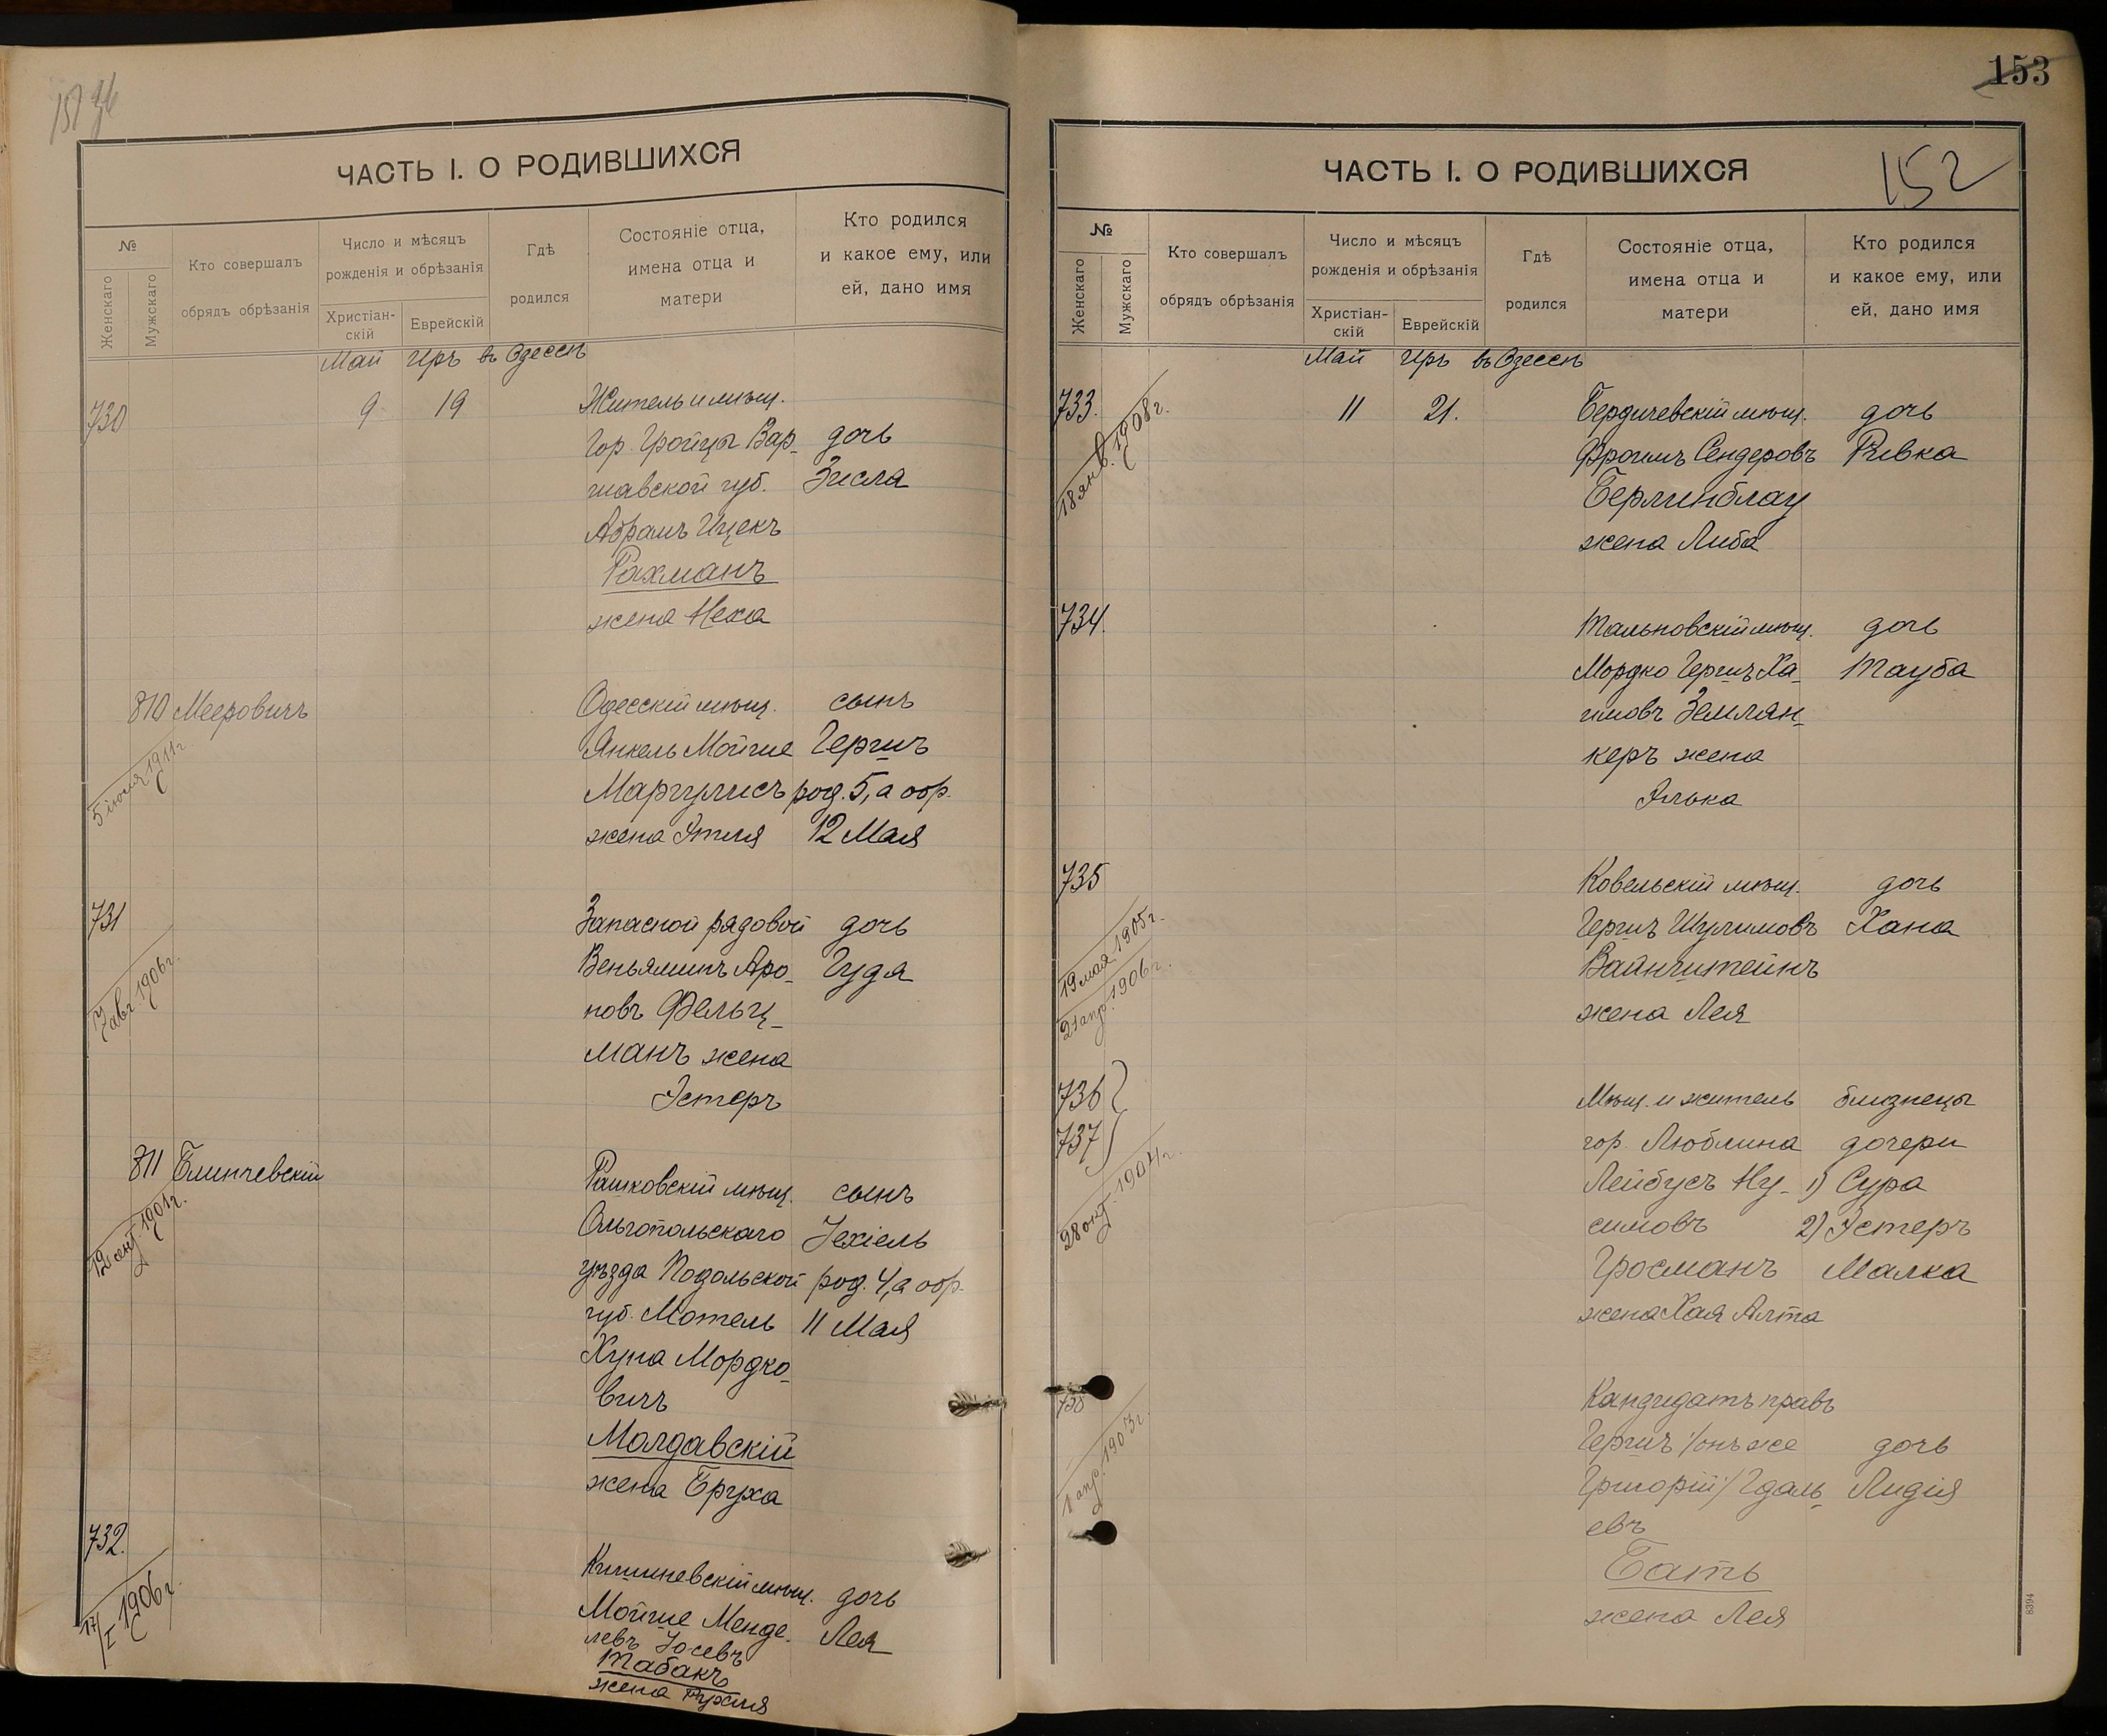 ЧАСТЬ I. О РОДИВШИХСЯ
№
Женскаго
Мужскаго
Кто совершалъ
обрядъ обрѣзанія
Число и мѣсяцъ
рожденія и обрѣзанія
Христіан-
скій
Еврейскій
Гдѣ
родился
Состояніе отца,
имена отца и
матери
Кто родился
и какое ему, или
ей, дано имя
Май Иръ въ Одессѣ
730 9 19 Житель и мѣщ.
гор. Гройцы Вар- дочь
шавской губ. Зисла
Абрамъ Ицекъ
Рахманъ
жена Неха
810 Мееровичъ Одесскій мѣщ. сынъ
5 іюля 1911 г. Янкель Мойше Гершъ
Маргулисъ род. 5, а обр.
жена Этля 12 Мая
731 Запасной рядовой дочь
7 авг. 1906 г. Веньяминъ Аро- Гудя
новъ Фельц-
манъ жена
Эстеръ
811 Блинчевскій Рашковскій мѣщ. сынъ
12 сент. 1901 г. Ольгопольскаго Іехіель
уѣзда Подольской род. 4, а обр.
губ. Мотель 11 Мая
Хуна Мордко-
вичъ
Молдавскій
жена Бруха
732. Кишиневскій мѣщ. дочь
17/I 1906 г. Мойше Менде- Лея
левъ Іосевъ
Табакъ
жена Рухля
153
ЧАСТЬ I. О РОДИВШИХСЯ
152
№
Женскаго
Мужскаго
Кто совершалъ
обрядъ обрѣзанія
Число и мѣсяцъ
рожденія и обрѣзанія
Христіан-
скій
Еврейскій
Гдѣ
родился
Состояніе отца,
имена отца и
матери
Кто родился
и какое ему, или
ей, дано имя
Май Иръ въ Одессѣ
733. 11 21. Бердичевскій мѣщ. дочь
18 янв. 1908 г. Фроимъ Сендеровъ Ривка
Берлинблау
жена Либа
734. Тальновскій мѣщ. дочь
Мордко Гершъ Ха- Тауба
имовъ Землян-
керъ жена
Элька
735 Ковельскій мѣщ. дочь
19 мая 1905 г. Гершъ Шулимовъ Хана
21 апр. 1906 г. Вайнштейнъ
жена Лея
736 Мѣщ. и житель близнецы
737 гор. Люблина дочери
28 окт. 1904 г. Лейбусъ Ну- 1) Сура
симовъ 2) Эстеръ
Гросманъ Малка
жена Хая Алта
738 Кандидатъ правъ
1 апр. 1903 г. Гершъ /онъ же дочь
Григорій/ Гдаль- Лидія
евъ
Бать
жена Лея
8394